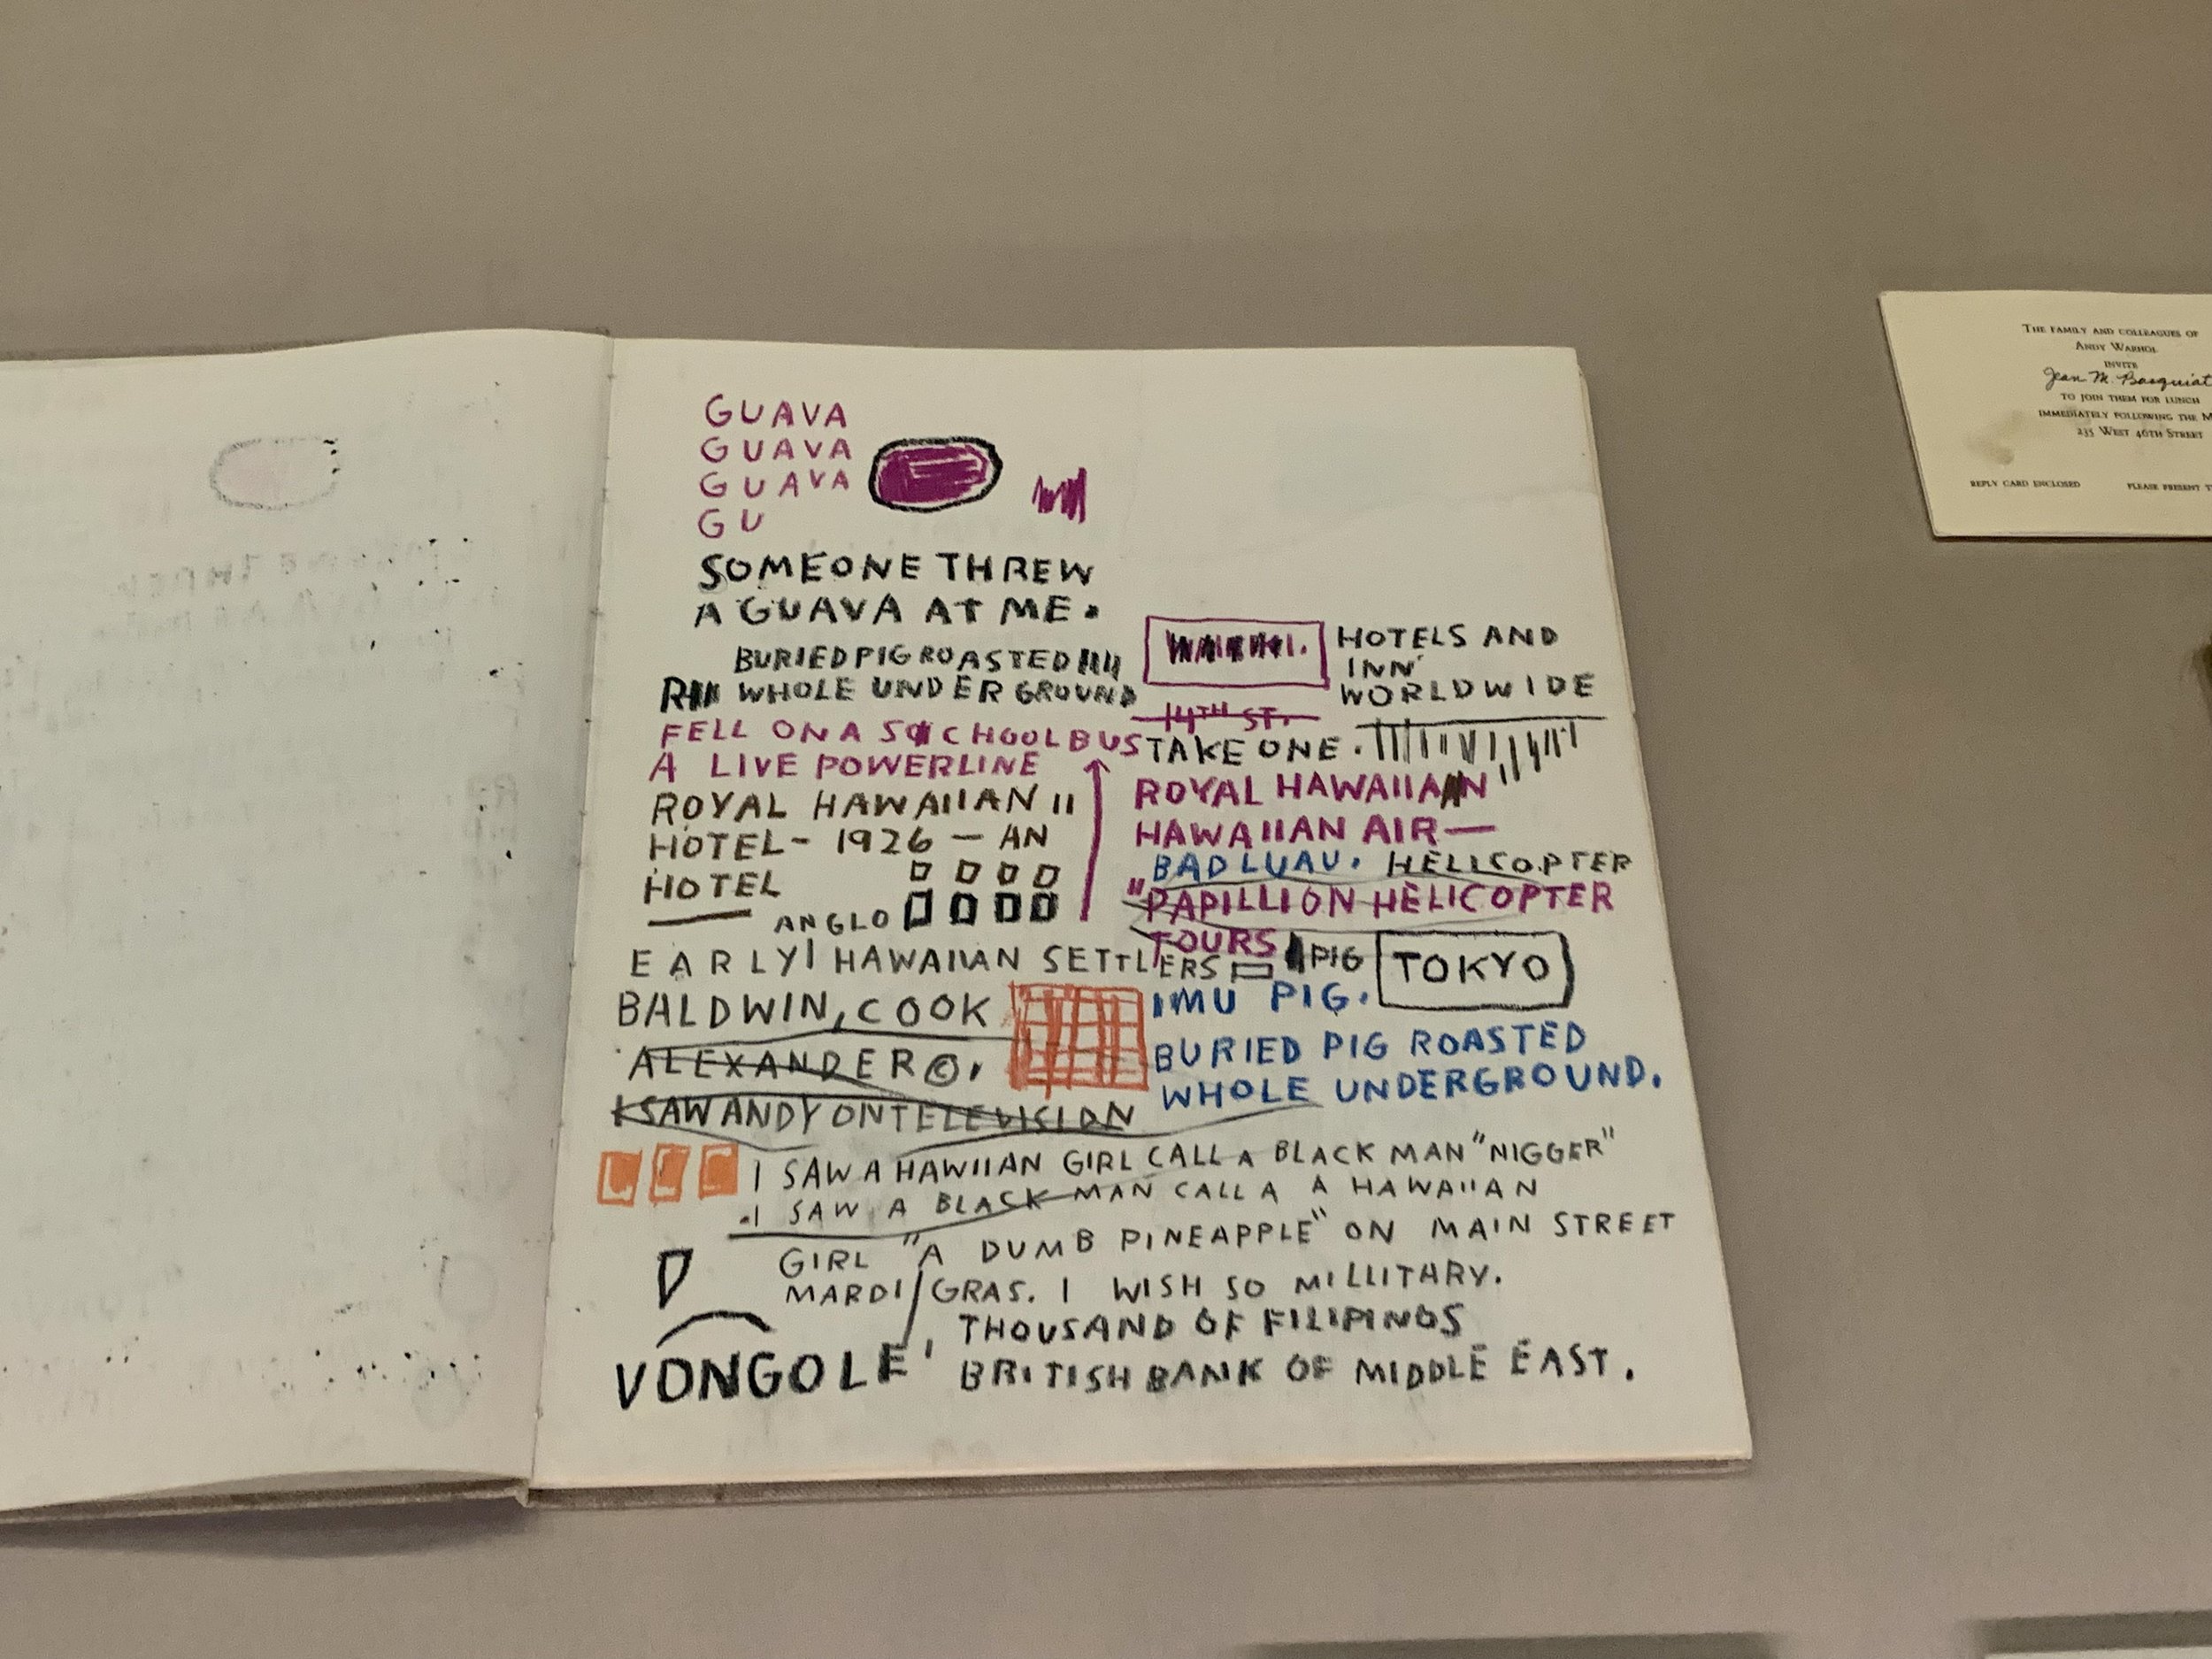 GUAVA
GUAVA
GUAVA
GU
SOMEONE THREW
A GUAVA AT ME.
BURIED PIG ROASTED
WHOLE UNDER GROUND
FELL ON A SCHOOL BUS
A LIVE POWERLINE
ROYAL HAWAIIAN
HOTEL- 1926 - AN
HOTEL
ANGLO
EARLY HAWAIIAN SETTLERS
BALDWIN, COOK
ALEXANDER ©.
I SAW ANDY ON TELEVISION
HOTELS AND
INN
WORLDWIDE
14TH ST.
TAKE ONE.
ROYAL HAWAIIAN
HAWAIIAN AIR—
BAD LUAU. HELLCOPTER
"PAPILLION HELICOPTER
TOURS
PIG
TOKYO
IMU PIG.
BURIED PIG ROASTED
WHOLE UNDERGROUND.
I SAW A HAWIIAN GIRL CALL A BLACK MAN "NIGGER"
I SAW A BLACK MAN CALL A A HAWAIIAN
GIRL "A DUMB PINEAPPLE" ON MAIN STREET
MARDI GRAS. I WISH SO MILLITARY.
THOUSAND OF FILIPINOS
VONGOLE' BRITISH BANK OF MIDDLE EAST.
THE FAMILY AND COLLEAGUES OF
ANDY WARHOL
INVITE
Jean M. Basquiat
TO JOIN THEM FOR LUNCH
IMMEDIATELY FOLLOWING THE
235 WEST 46TH STREET
REPLY CARD ENCLOSED
PLEASE PRESENT